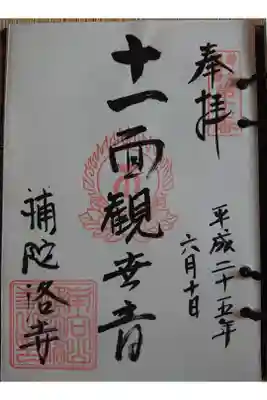 奉拝
平成二十五年
六月十日
十一面観世音
補陀洛寺